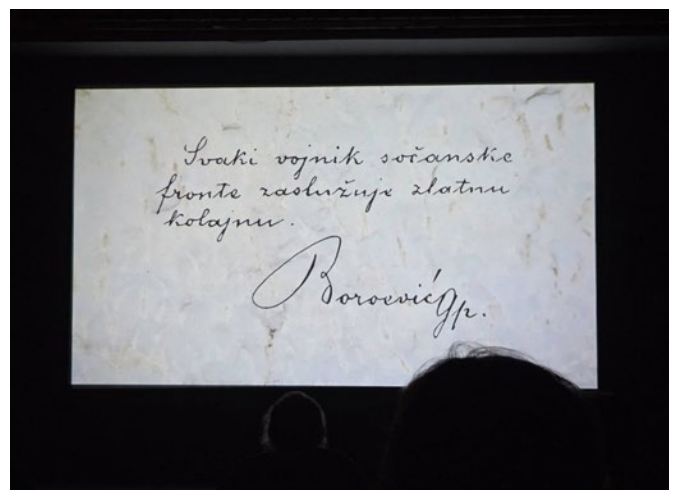 Svaki vojnik sočanske
fronte zaslužuje zlatnu
kolajnu.
Boroević Gp.